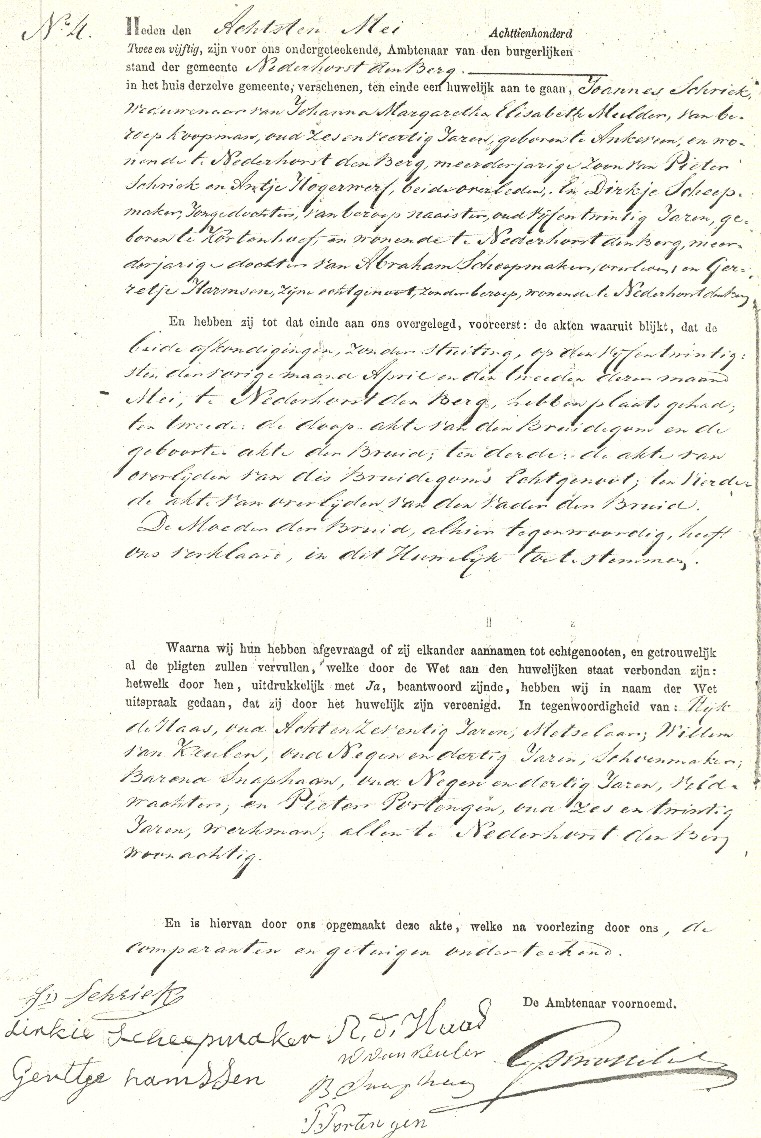 No 4.
Heden den Achtsten Mei Achttienhonderd
Twee en vijftig, zijn voor ons ondergeteekende, Ambtenaar van den burgerlijken
stand der gemeente Nederhorst den Berg.
in het huis derzelve gemeente, verschenen, ten einde een huwelijk aan te gaan, Joannes Schriek,
Weduwenaar van Johanna Margaretha Elisabeth Mulder, van be-
roep koopman, oud Zes en Veertig Jaren, geboren te Ankeveen, en wo-
nende te Nederhorst den Berg, meerderjarige Zoon van Pieter
Schriek en Antje Hogerwerf, beide overleden, En Dirkje Scheep-
maker, Jonge dochter, van beroep naaister, oud Vijf en twintig Jaren, ge-
boren te Kortenhoef, en wonende te Nederhorst den Berg, meer-
derjarige dochter van Abraham Scheepmaker, overleden en Ger-
retje Harmsen, Zijne echtgenoot, Zonder beroep, wonende te Nederhorst den Berg,
En hebben zij tot dat einde aan ons overgelegd, vooreerst: de akten waaruit blijkt, dat de
beide afkondigingen, zonder stuiting, op den Vijf en twintig-
sten der vorige maand April en den tweeden dezer maand
Mei, te Nederhorst den Berg, hebben plaats gehad;
ten tweede: de doop-akte van den Bruidegom en de
geboorte akte der Bruid; ten derde: de akte van
overlijden van des Bruidegoms Echtgenoot; ten Vierde
de akte van overlijden van den Vader der Bruid.
De Moeder der Bruid, alhier tegenwoordig, heeft
ons verklaard, in dit Huwelijk toe te stemmen.
Waarna wij hun hebben afgevraagd of zij elkander aannamen tot echtgenooten, en getrouwelijk
al de pligten zullen vervullen, welke door de Wet aan den huwelijken staat verbonden zijn:
hetwelk door hen, uitdrukkelijk met Ja, beantwoord zijnde, hebben wij in naam der Wet
uitspraak gedaan, dat zij door het huwelijk zijn vereenigd. In tegenwoordigheid van: Rijk
de Haas, oud Acht en Zeventig Jaren, Metselaar; Willem
van Keulen, oud Negen en dertig Jaren, Schoenmaker;
Barend Snaphaan, oud Negen en dertig Jaren, Veld-
wachter; en Pieter Portengen, oud Zes en twintig
Jaren, werkman; allen te Nederhorst den Berg
woonachtig.
En is hiervan door ons opgemaakt deze akte, welke na voorlezing door ons, de
comparanten en getuigen onderteekend.
De Ambtenaar voornoemd.
Js Schriek
dirkie Scheepmaker R. d. Haas
W van Keulen
Gerttge hamssen
B Snaphaan
P Portengen